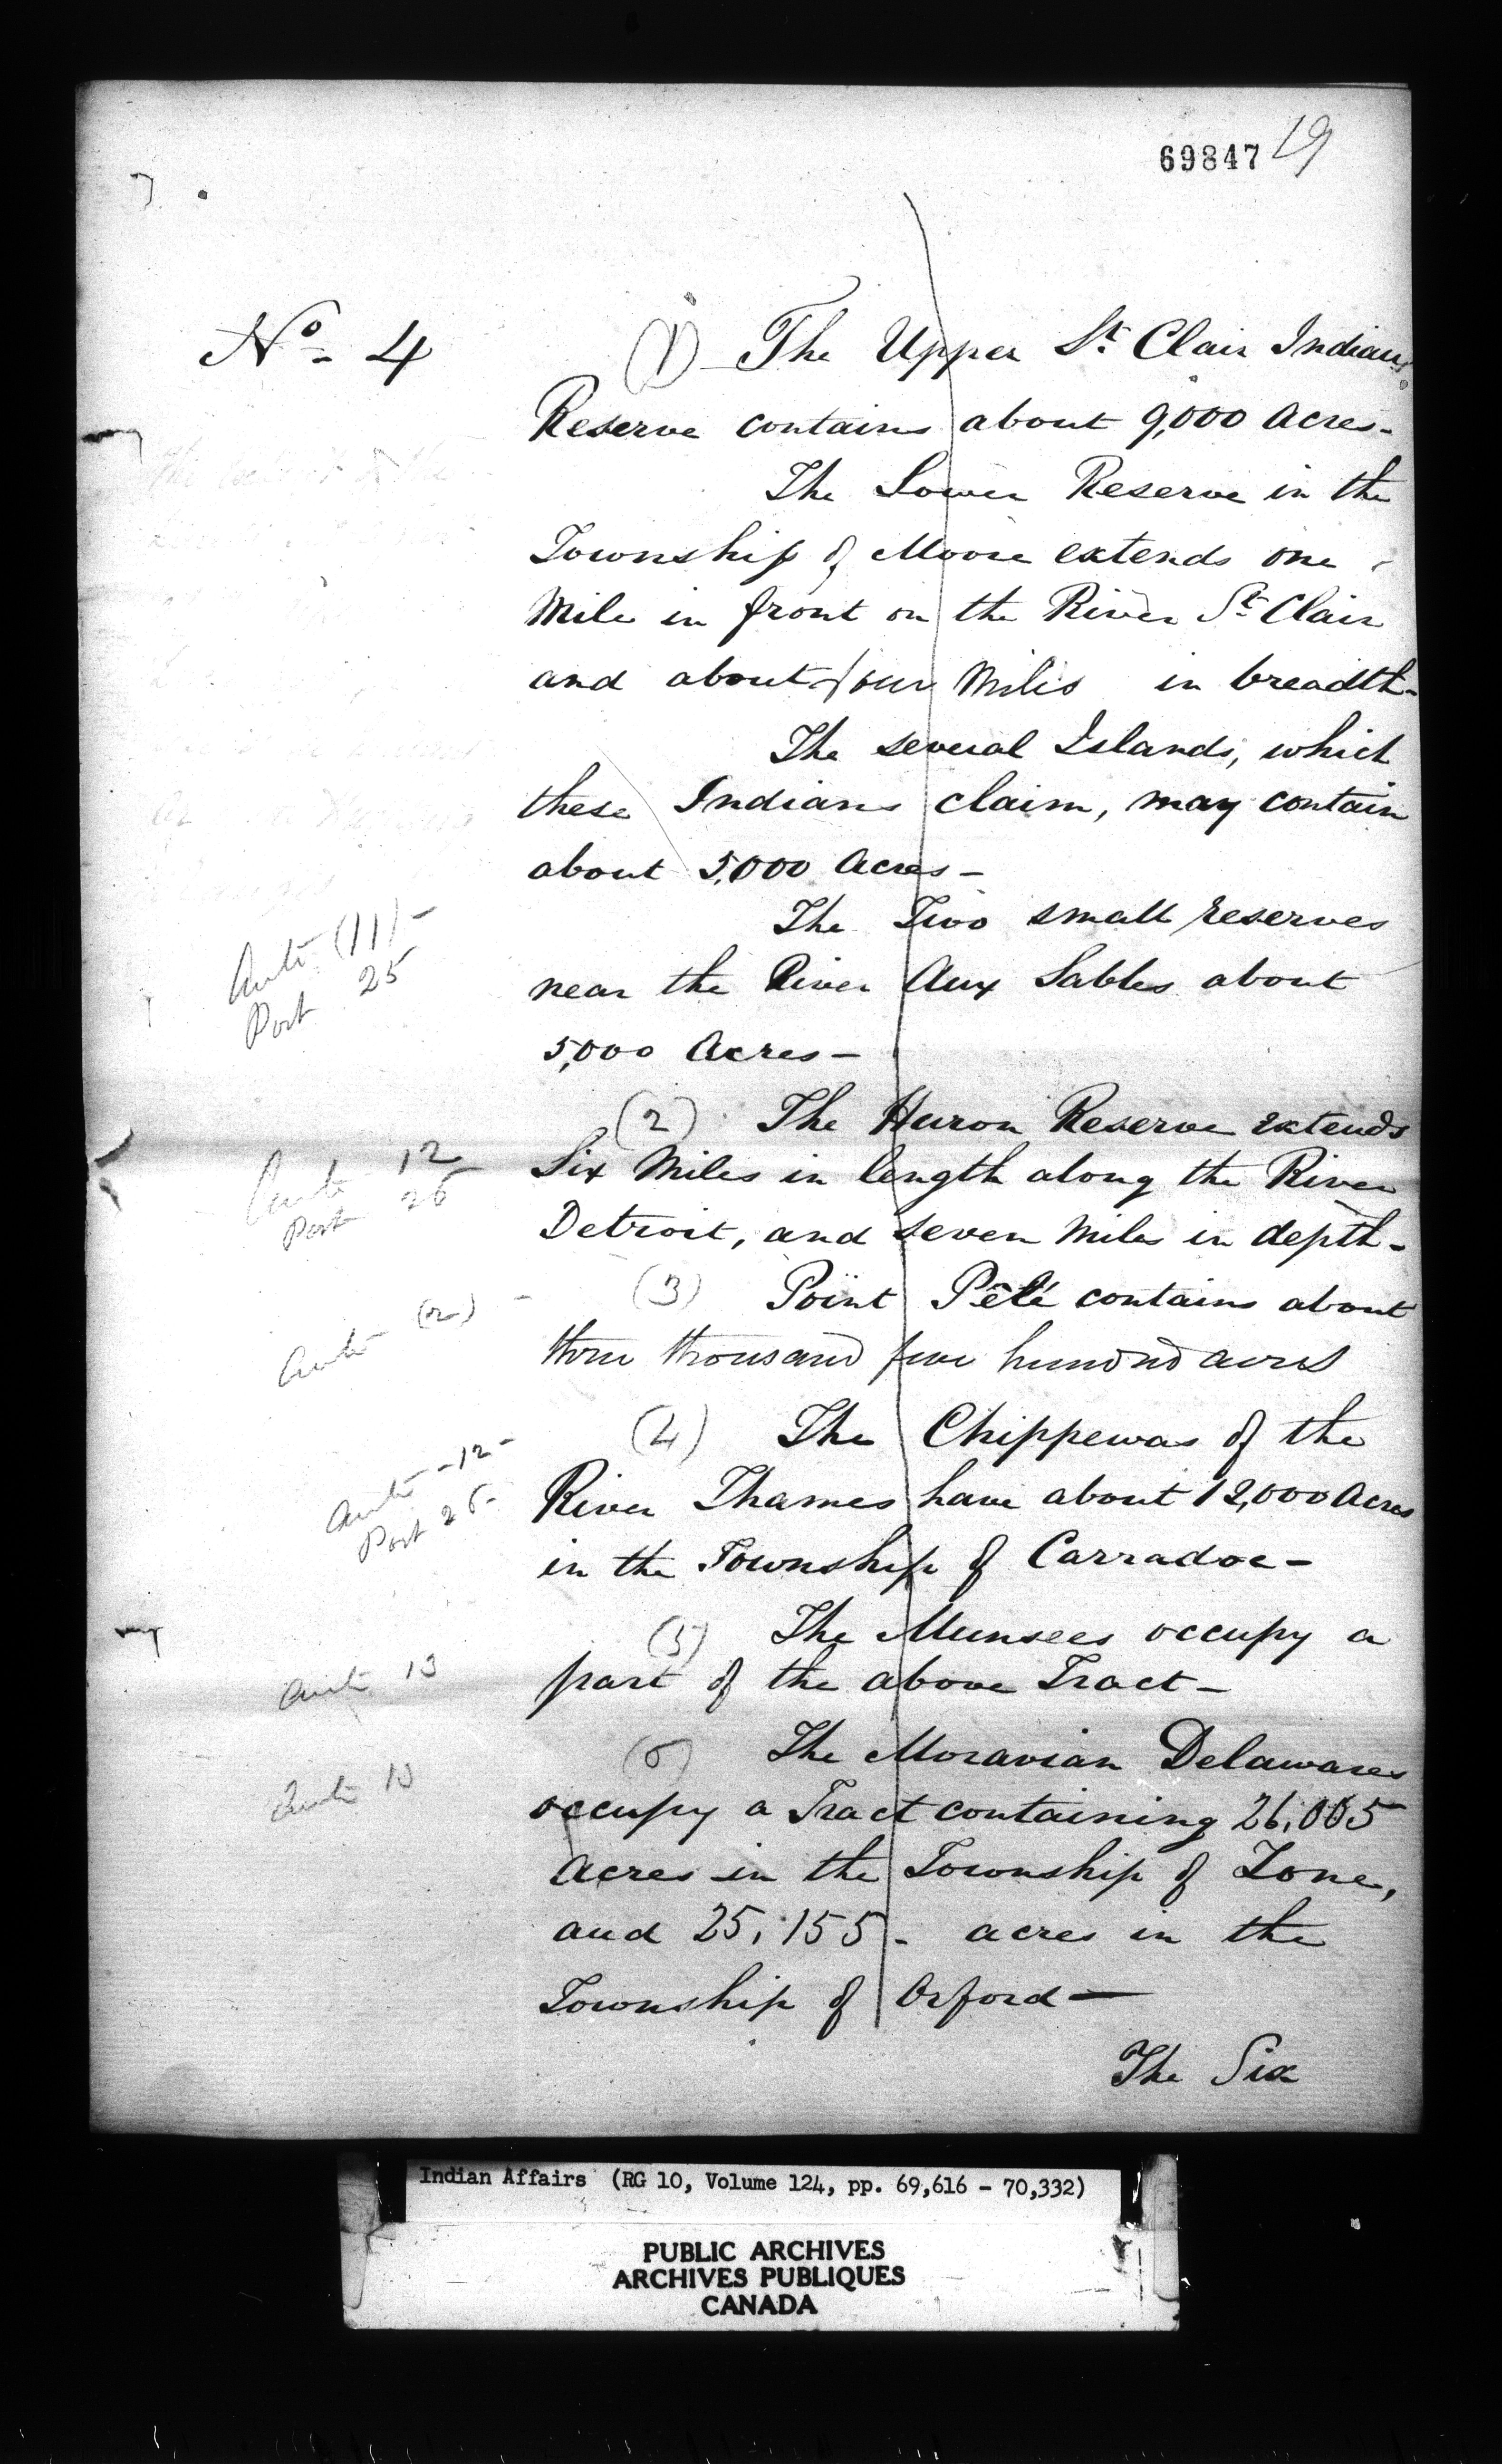 69847 19
No. 4
(1) The Upper St. Clair Indians
Reserve contains about 9,000 Acres-
The Lower Reserve in the
Township of Moore extends one
Mile in front on the River St. Clair
and about four Miles in breadth-
The several Islands, which
these Indians claim, may contain
about 5,000 Acres-
The Two small reserves
Ante (11)-
Post 25
near the River Aux Sables about
5,000 Acres-
(2) The Huron Reserve extends
Ante 12
Post 26
Six Miles in length along the River
Detroit, and seven Miles in depth-
(3) Point Pélé contains about
Ante (2) -
three thousand five hundred acres
(4) The Chippewas of the
Ante -12-
Post 26-
River Thames have about 12,000 Acres
in the Township of Carradoc-
(5) The Munsees occupy a
Ante 13
part of the above Tract-
(6) The Moravian Delawares
Ante 13
occupy a Tract containing 26,005
Acres in the Township of Zone,
and 25,155- acres in the
Township of Orford-
The Six
Indian Affairs (RG 10, Volume 124, pp. 69,616 - 70,332)
PUBLIC ARCHIVES
ARCHIVES PUBLIQUES
CANADA